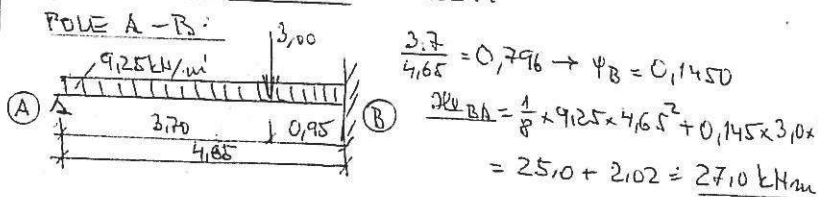 POLE A-B:
3,00
9,25 kN/m'
A
B
3,70
0,95
4,65
3.7/4,65 = 0,796 → ψB = 0,1450
𝓜BA = 1/8 × 9,25 × 4,65² + 0,145 × 3,0 ×
= 25,0 + 2,02 ≐ 27,0 kNm